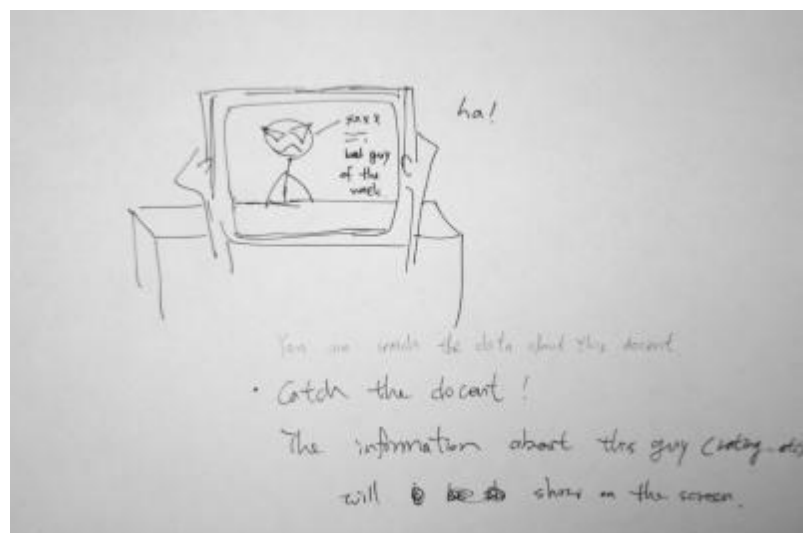 ha!
xxxx
bad guy
of the
week
You can the data about this docent
• Catch the docent !
The information about this guy (rating etc)
will show on the screen.